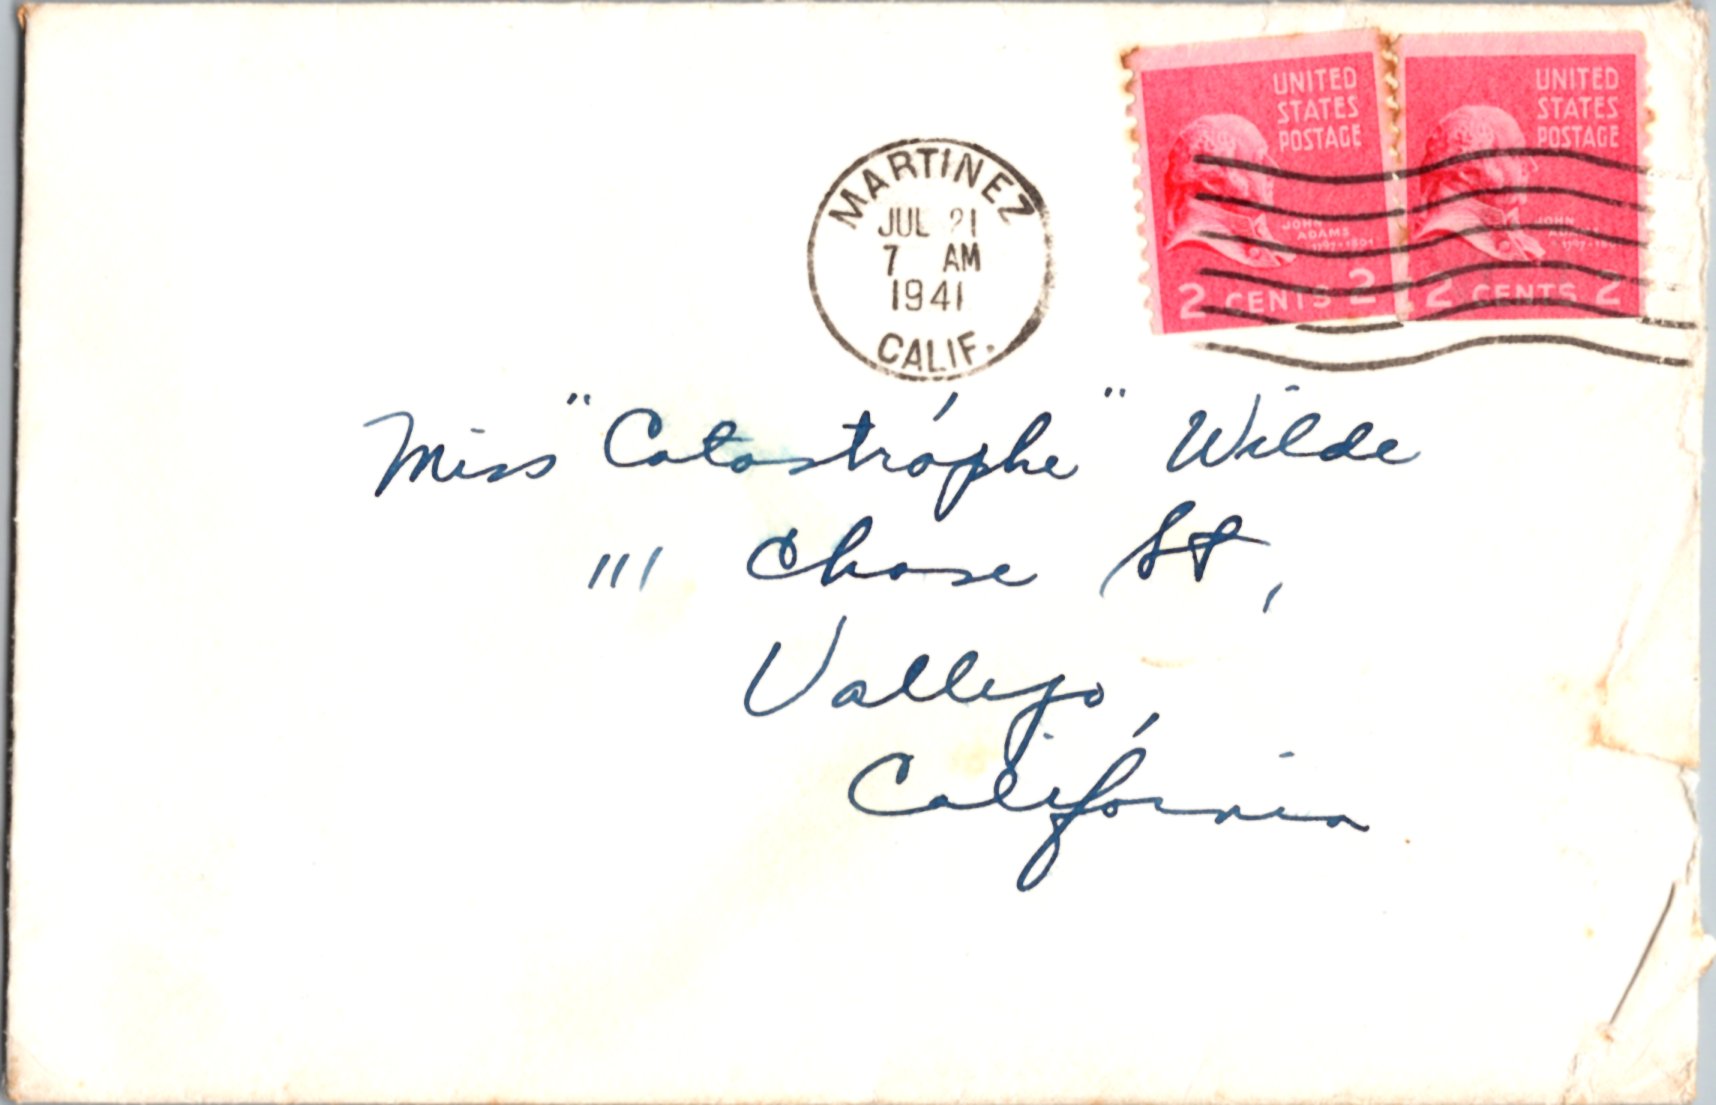 UNITED
STATES
POSTAGE
JOHN
ADAMS
1797·1801
2 CENTS 2
UNITED
STATES
POSTAGE
JOHN
2 CENTS 2
MARTINEZ
JUL 21
7 AM
1941
CALIF.
Miss "Catastrophe" Wilde
111 Chase St,
Vallejo,
California